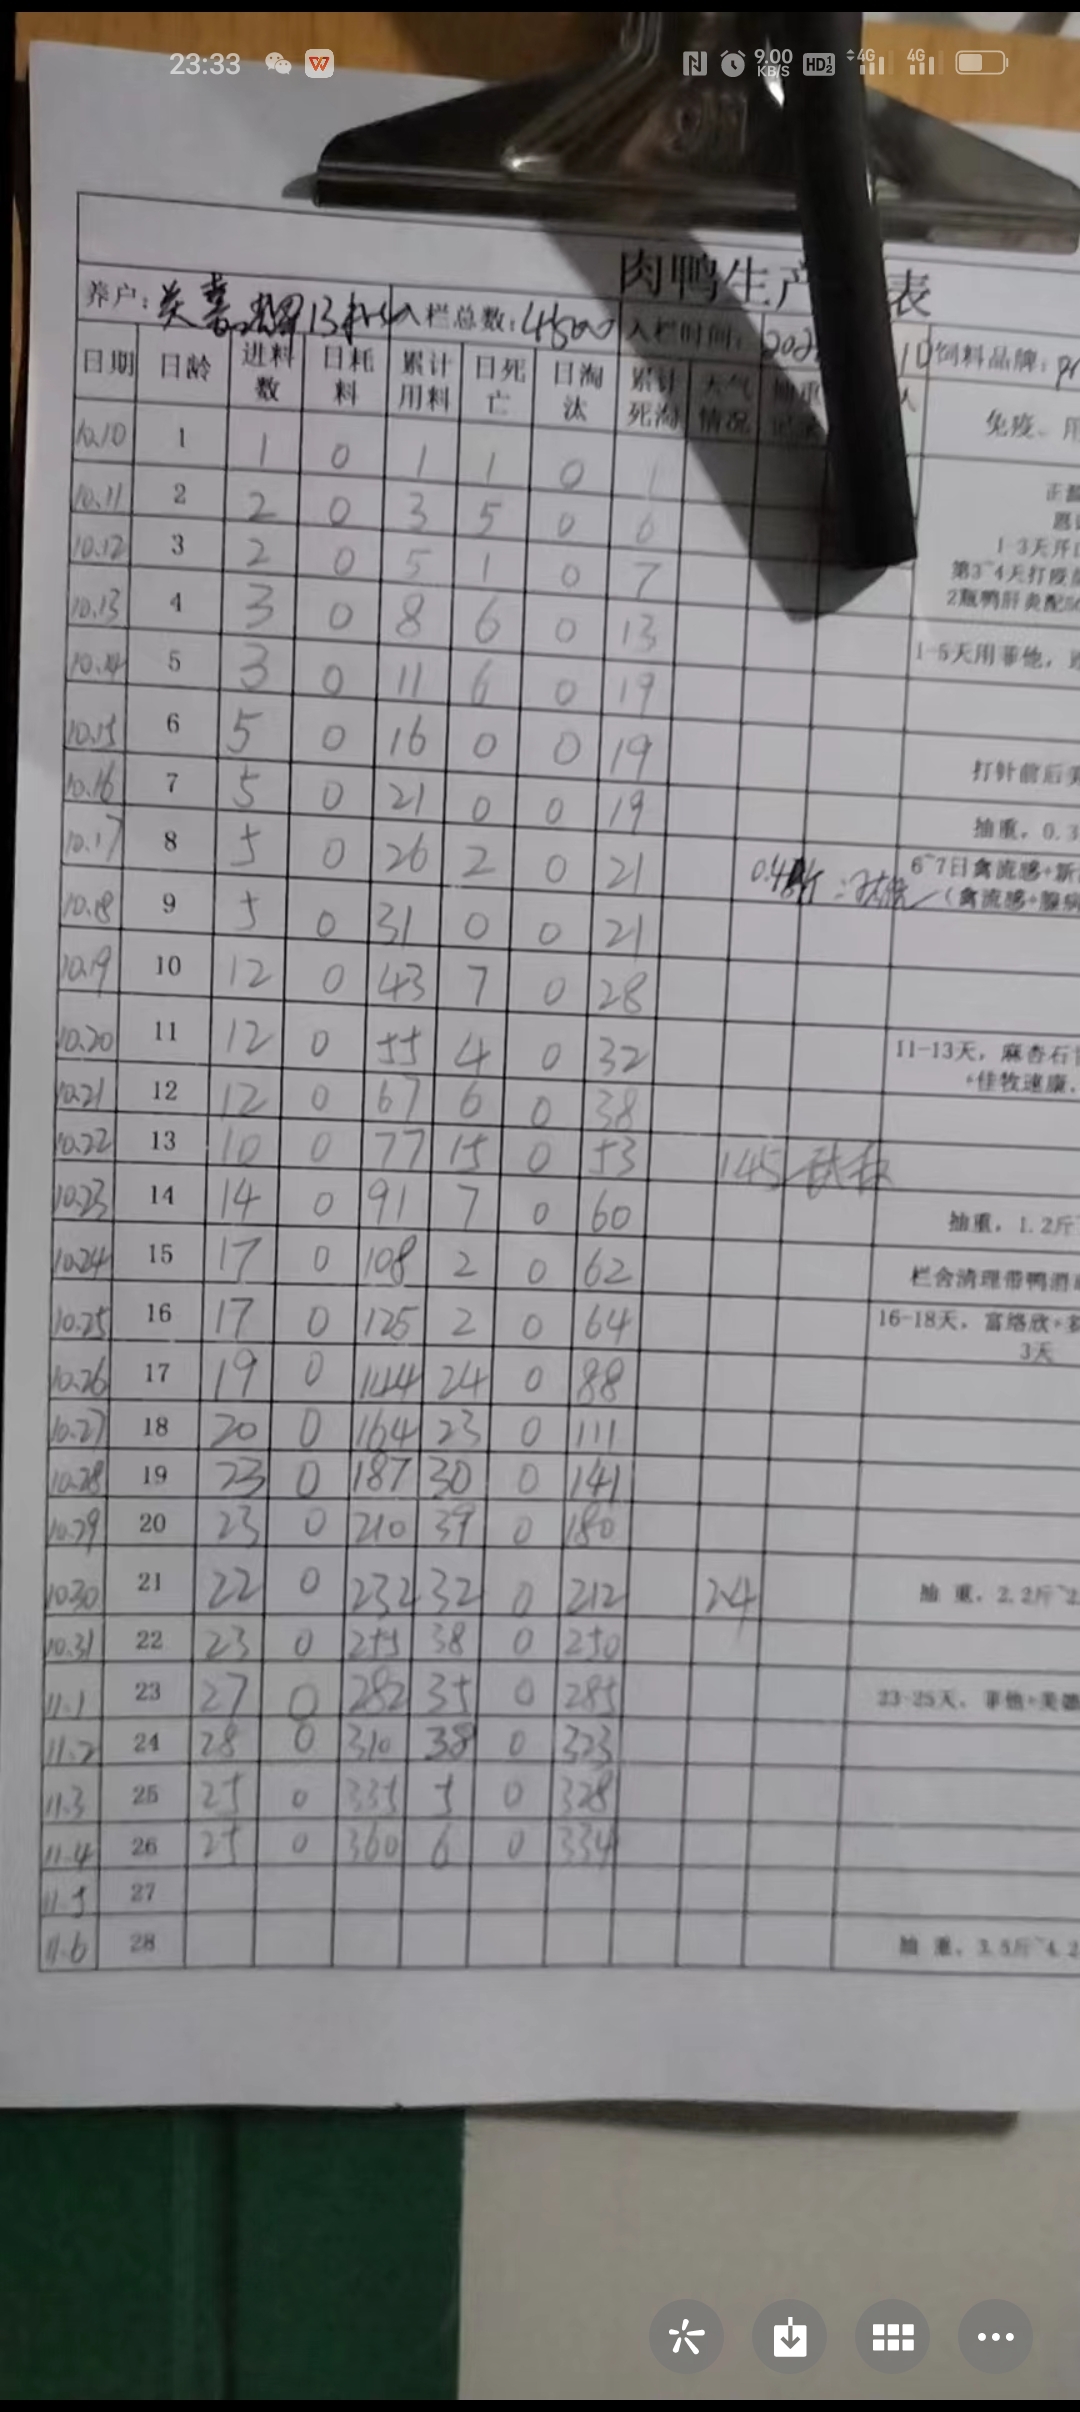 23:33 9.00 KB/S HD 4G 4G
肉鸭生产 表
养户: 13 入栏总数:4500 入栏时间: 202 10 饲料品牌:
日期 日龄 进料数 日耗料 累计用料 日死亡 日淘汰 累计死淘 天气情况 免疫、用
10.10 1 1 0 1 1 0 1
10.11 2 2 0 3 5 0 6
10.12 3 2 0 5 1 0 7
1-3天开口
第3~4天打疫苗
2瓶鸭肝炎配50
10.13 4 3 0 8 6 0 13
1-5天用菲他,
10.14 5 3 0 11 6 0 19
10.15 6 5 0 16 0 0 19
打针前后
10.16 7 5 0 21 0 0 19
抽重, 0.3
10.17 8 5 0 26 2 0 21 0.4
6~7日禽流感+新
(禽流感+腺病
10.18 9 5 0 31 0 0 21
10.19 10 12 0 43 7 0 28
10.20 11 12 0 55 4 0 32 11-13天, 麻杏石
+佳牧速康.
10.21 12 12 0 67 6 0 38
10.22 13 10 0 77 15 0 53 145
10.23 14 14 0 91 7 0 60 抽重, 1.2斤
10.24 15 17 0 108 2 0 62 栏舍清理带鸭消
10.25 16 17 0 125 2 0 64 16-18天, 富络欣+
3天
10.26 17 19 0 144 24 0 88
10.27 18 20 0 164 23 0 111
10.28 19 23 0 187 30 0 141
10.29 20 23 0 210 39 0 180
10.30 21 22 0 232 32 0 212 2.4 抽 重, 2.2斤~2.
10.31 22 23 0 255 38 0 250
11.1 23 27 0 282 35 0 285 23-25天, 菲他+美
11.2 24 28 0 310 38 0 323
11.3 25 25 0 335 5 0 328
11.4 26 25 0 360 6 0 334
11.5 27
11.6 28 抽 重, 3.5斤~4.2